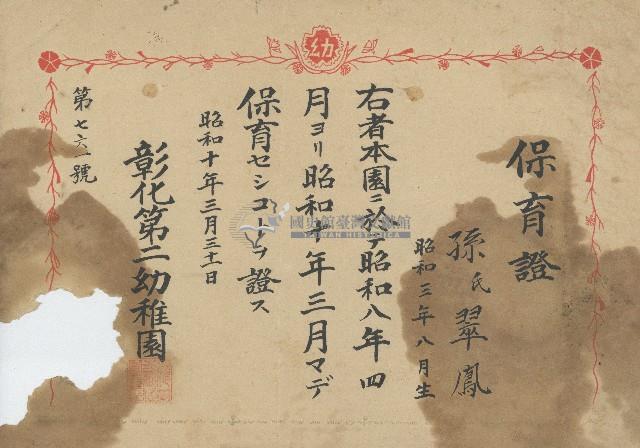 幼
保育證
孫氏翠鳳
昭和三年八月生
右者本園ニ於テ昭和八年四
月ヨリ昭和十年三月マデ
保育セシコトヲ證ス
昭和十年三月三十一日
彰化第二幼稚園
第七六一號
國史館臺灣文獻館
TAIWAN HISTORICA